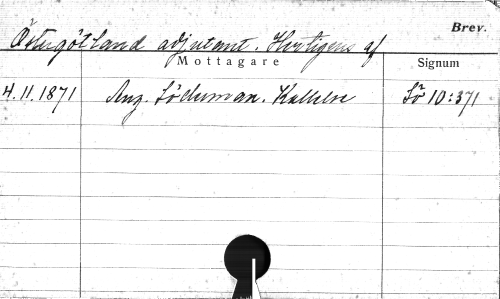 Brev.
Östergötland adjutant. Hertigens af
Mottagare
Signum
4.11.1871 Aug. Söderman. Sö 10:371